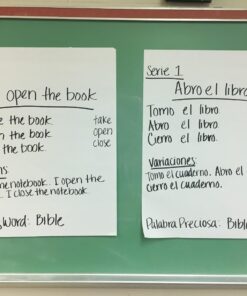 open the book
the book. take
the book. open
the book. close
the notebook. I open the
. I close the notebook.
Word: Bible
Serie 1
Abro el libro
Tomo el libro.
Abro el libro.
Cierro el libro.
Variaciones:
Tomo el cuaderno. Abro el
Cierro el cuaderno.
Palabra Preciosa: Bibl